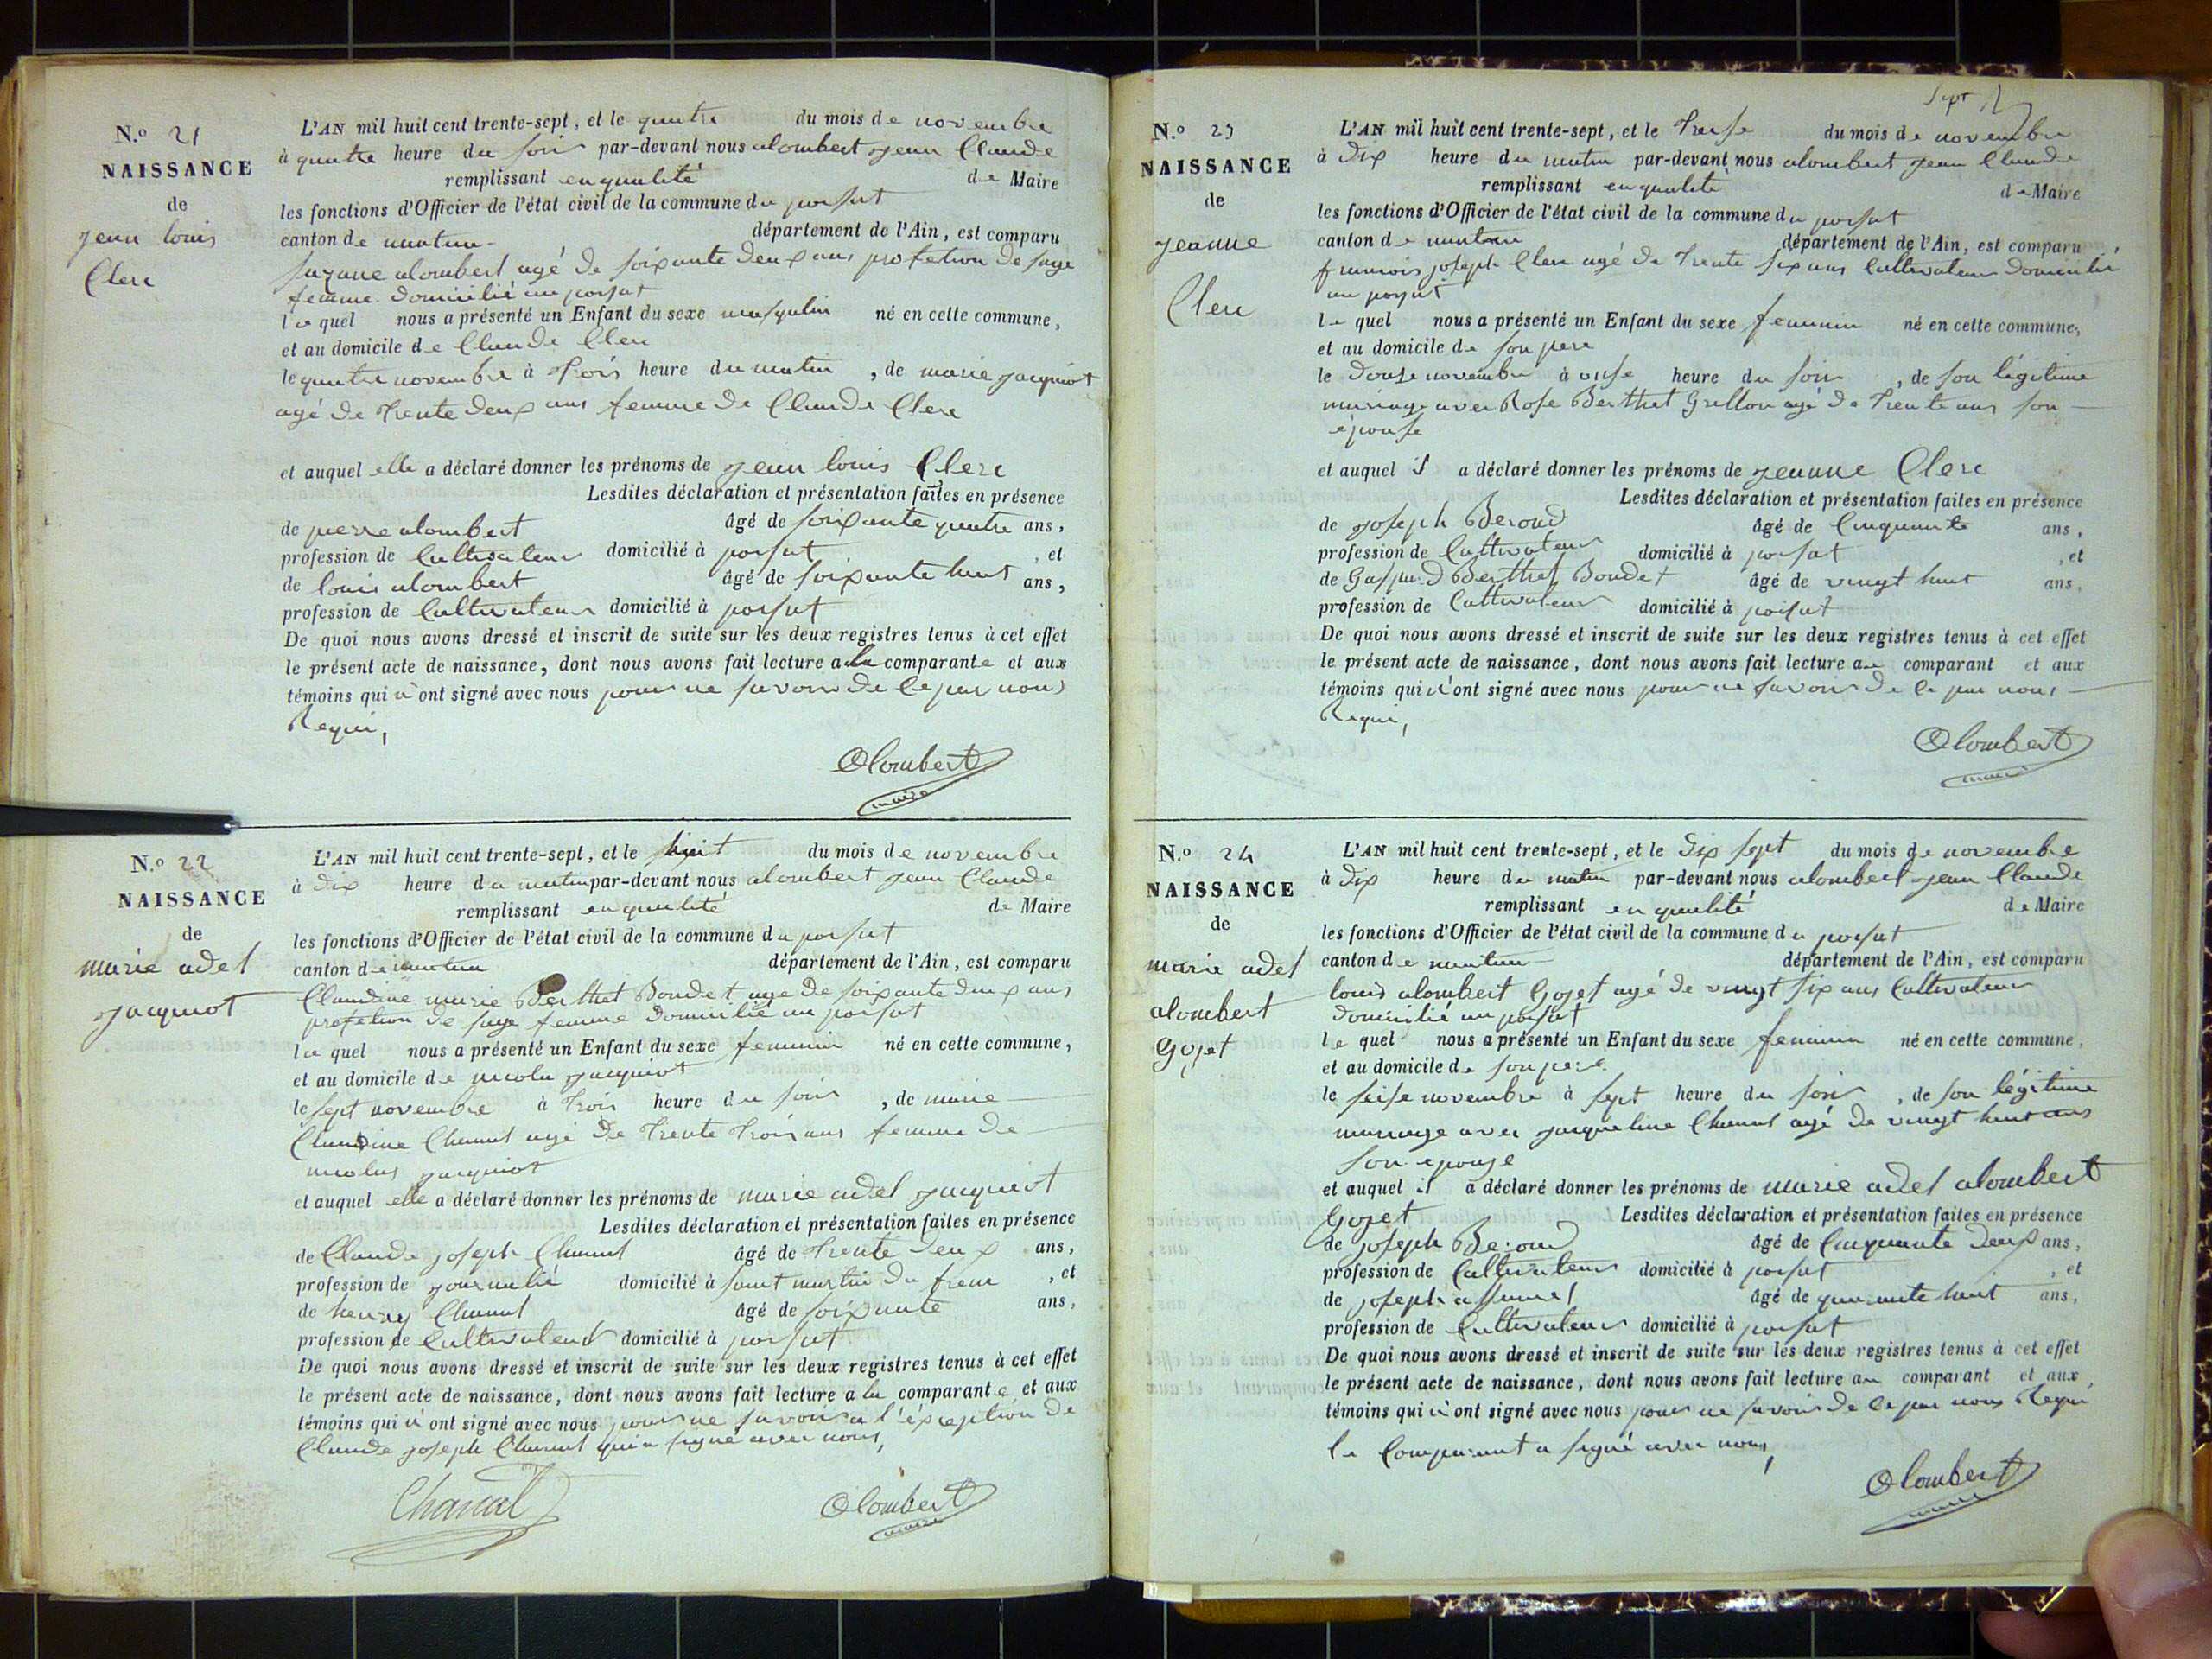 N.o 21
NAISSANCE
de
jean louis
Clerc
L'AN mil huit cent trente-sept, et le quatre du mois de novembre
à quatre heure du soir par-devant nous alombert jean Claude
remplissant en qualité de Maire
les fonctions d'Officier de l'état civil de la commune du poisat
canton de nantua département de l'Ain, est comparu
suzane alombert agé de soixante deux ans profetion de sage
femme domicilié au poisat
la quel nous a présenté un Enfant du sexe masqulin né en cette commune,
et au domicile de Claude Clerc
le quatre novembre à trois heure du matin, de marie jacquiot
agé de trente deux ans femme de Claude Clerc
et auquel elle a déclaré donner les prénoms de jean louis Clerc
Lesdites déclaration et présentation faites en présence
de pierre alombert âgé de soixante quatre ans,
profession de Cultivateur domicilié à poisat, et
de louis alombert âgé de soixante huit ans,
profession de Cultivateur domicilié à poisat
De quoi nous avons dressé et inscrit de suite sur les deux registres tenus à cet effet
le présent acte de naissance, dont nous avons fait lecture a la comparante et aux
témoins qui n'ont signé avec nous pour ne savoir de ce par nous
Requi,
Alombert
maire
N.o 22
NAISSANCE
de
marie adel
jacquiot
L'AN mil huit cent trente-sept, et le huit du mois de novembre
à dix heure du matin par-devant nous alombert jean Claude
remplissant en qualité de Maire
les fonctions d'Officier de l'état civil de la commune du poisat
canton de nantua département de l'Ain, est comparu
Claudine marie Berthet Boudet age de soixante deux ans
profetion de sage femme domicilié au poisat
la quel nous a présenté un Enfant du sexe feminin né en cette commune,
et au domicile de nicola jacquiot
le sept novembre à trois heure du soir, de marie
Claudine Chanal agé de trente trois ans femme de
nicolas jacquiot
et auquel elle a déclaré donner les prénoms de marie adel jacquiot
Lesdites déclaration et présentation faites en présence
de Claude joseph Chanal âgé de trente deux ans,
profession de journalié domicilié à saint martin du frene, et
de henry Chanal âgé de soixante ans,
profession de Cultivateur domicilié à poisat
De quoi nous avons dressé et inscrit de suite sur les deux registres tenus à cet effet
le présent acte de naissance, dont nous avons fait lecture a la comparante et aux
témoins qui n'ont signé avec nous pour ne savoir a l'éxception de
Claude joseph Chanal qui a signé avec nous,
Chanal Alombert
maire
Sept
N.o 23
NAISSANCE
de
jeanne
Clerc
L'AN mil huit cent trente-sept, et le treise du mois de novembre
à dix heure du matin par-devant nous alombert jean Claude
remplissant en qualité de Maire
les fonctions d'Officier de l'état civil de la commune du poisat
canton de nantua département de l'Ain, est comparu
francois joseph Clerc agé de trente six ans Cultivateur domicilié
au poisat
le quel nous a présenté un Enfant du sexe feminin né en cette commune,
et au domicile de son pere
le douse novembre à onse heure du soir, de son légitime
mariage avec Rose Berthet Grillon agé de trente ans son
epouse
et auquel il a déclaré donner les prénoms de jeanne Clerc
Lesdites déclaration et présentation faites en présence
de joseph Beroud âgé de Cinquante ans,
profession de Cultivateur domicilié à poisat, et
de Gaspard Berthet Boudet âgé de vingt huit ans,
profession de Cultivateur domicilié à poisat
De quoi nous avons dressé et inscrit de suite sur les deux registres tenus à cet effet
le présent acte de naissance, dont nous avons fait lecture au comparant et aux
témoins qui n'ont signé avec nous pour ne savoir de ce par nous
Requi,
Alombert
maire
N.o 24
NAISSANCE
de
marie adel
alombert
Gojet
L'AN mil huit cent trente-sept, et le dix sept du mois de novembre
à dix heure du matin par-devant nous alombert jean Claude
remplissant en qualité de Maire
les fonctions d'Officier de l'état civil de la commune du poisat
canton de nantua département de l'Ain, est comparu
louis alombert Gojet agé de vingt six ans Cultivateur
domicilié au poisat
le quel nous a présenté un Enfant du sexe feminin né en cette commune,
et au domicile de son pere
le seise novembre à sept heure du soir, de son légitime
mariage avec jacqueline Chanal agé de vingt huit ans
son epouse
et auquel il a déclaré donner les prénoms de marie adel alombert
Gojet Lesdites déclaration et présentation faites en présence
de joseph Beroud âgé de Cinquante deux ans,
profession de Cultivateur domicilié à poisat, et
de joseph âgé de quarante huit ans,
profession de Cultivateur domicilié à poisat
De quoi nous avons dressé et inscrit de suite sur les deux registres tenus à cet effet
le présent acte de naissance, dont nous avons fait lecture au comparant et aux
témoins qui n'ont signé avec nous pour ne savoir de ce par nous Requi
le Comparant a signé avec nous,
Alombert
maire